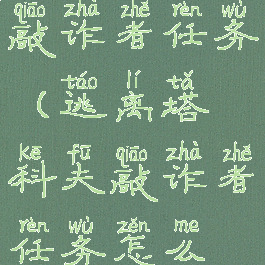 qiāo zhà zhě rèn wù
敲诈者任务
táo lí tǎ
(逃离塔
kē fū qiāo zhà zhě
科夫敲诈者
rèn wù zěn me
任务怎么